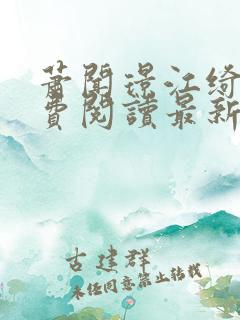 萧闻璟江绮
费阅读最新
古建群
未经同意禁止转载